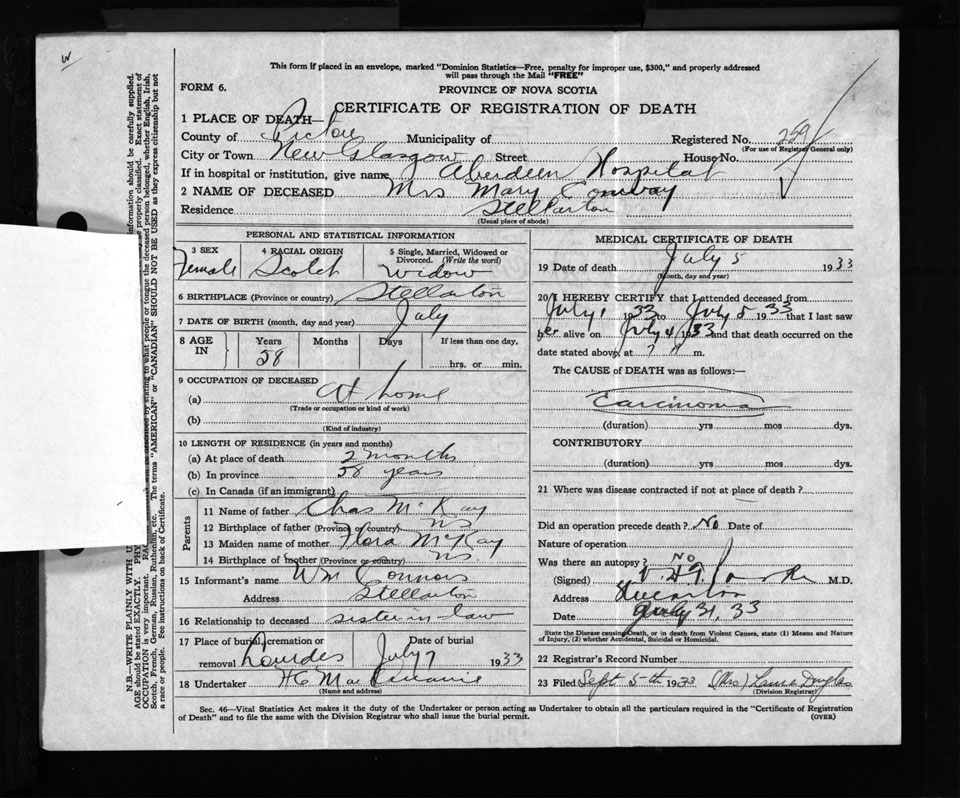 W
This form if placed in an envelope, marked "Dominion Statistics—Free, penalty for improper use, $300," and properly addressed
will pass through the Mail "FREE"
FORM 6.
PROVINCE OF NOVA SCOTIA
CERTIFICATE OF REGISTRATION OF DEATH
1 PLACE OF DEATH—
County of Pictou Municipality of Registered No. 259
(For use of Registrar General only)
City or Town New Glasgow Street House No.
If in hospital or institution, give name Aberdeen Hospital
2 NAME OF DECEASED Mrs Mary Conway
Residence Stellarton
(Usual place of abode)
PERSONAL AND STATISTICAL INFORMATION
3 SEX 4 RACIAL ORIGIN 5 Single, Married, Widowed or
Divorced. (Write the word)
Female Scotch Widow
6 BIRTHPLACE (Province or country) Stellarton
7 DATE OF BIRTH (month, day and year) July
8 AGE IN Years Months Days If less than one day,
58 hrs. or min.
9 OCCUPATION OF DECEASED
(a) At home
(Trade or occupation or kind of work)
(b)
(Kind of industry)
10 LENGTH OF RESIDENCE (in years and months)
(a) At place of death 2 months
(b) In province 58 years
(c) In Canada (if an immigrant)
Parents
11 Name of father Chas McKay
12 Birthplace of father (Province or country) NS
13 Maiden name of mother Flora McKay
14 Birthplace of mother (Province or country) NS
15 Informant's name Wm Connors
Address Stellarton
16 Relationship to deceased sister-in-law
17 Place of burial, cremation or Date of burial
removal Lourdes July 7 1933
18 Undertaker
(Name and address)
MEDICAL CERTIFICATE OF DEATH
19 Date of death July 5 1933
(Month, day and year)
20 I HEREBY CERTIFY that I attended deceased from
July 1 1933 to July 5 1933 that I last saw
her alive on July 4 1933 and that death occurred on the
date stated above, at m.
The CAUSE of DEATH was as follows:—
Carcinoma
(duration) yrs mos dys.
CONTRIBUTORY
(duration) yrs. mos dys.
21 Where was disease contracted if not at place of death?
Did an operation precede death? No Date of
Nature of operation
Was there an autopsy? No
(Signed) M.D.
Address
Date July 31, 33
State the Disease causing Death, or in death from Violent Causes, state (1) Means and Nature
of Injury, (2) whether Accidental, Suicidal or Homicidal.
22 Registrar's Record Number
23 Filed Sept 5th 1933 (Mrs) Laura Douglas
(Division Registrar)
Sec. 46—Vital Statistics Act makes it the duty of the Undertaker or person acting as Undertaker to obtain all the particulars required in the "Certificate of Registration
of Death" and to file the same with the Division Registrar who shall issue the burial permit. (OVER)
N.B.—WRITE PLAINLY WITH information should be carefully supplied.
AGE should be stated EXACTLY. properly classified. Exact statement of
OCCUPATION is very important. stating to what people or tongue the deceased person belonged, whether English, Irish,
Scotch, French, German, Russian, Ruthenian, etc. The terms "AMERICAN" or "CANADIAN" SHOULD NOT BE USED as they express citizenship but not
a race or people. See instructions on back of Certificate.